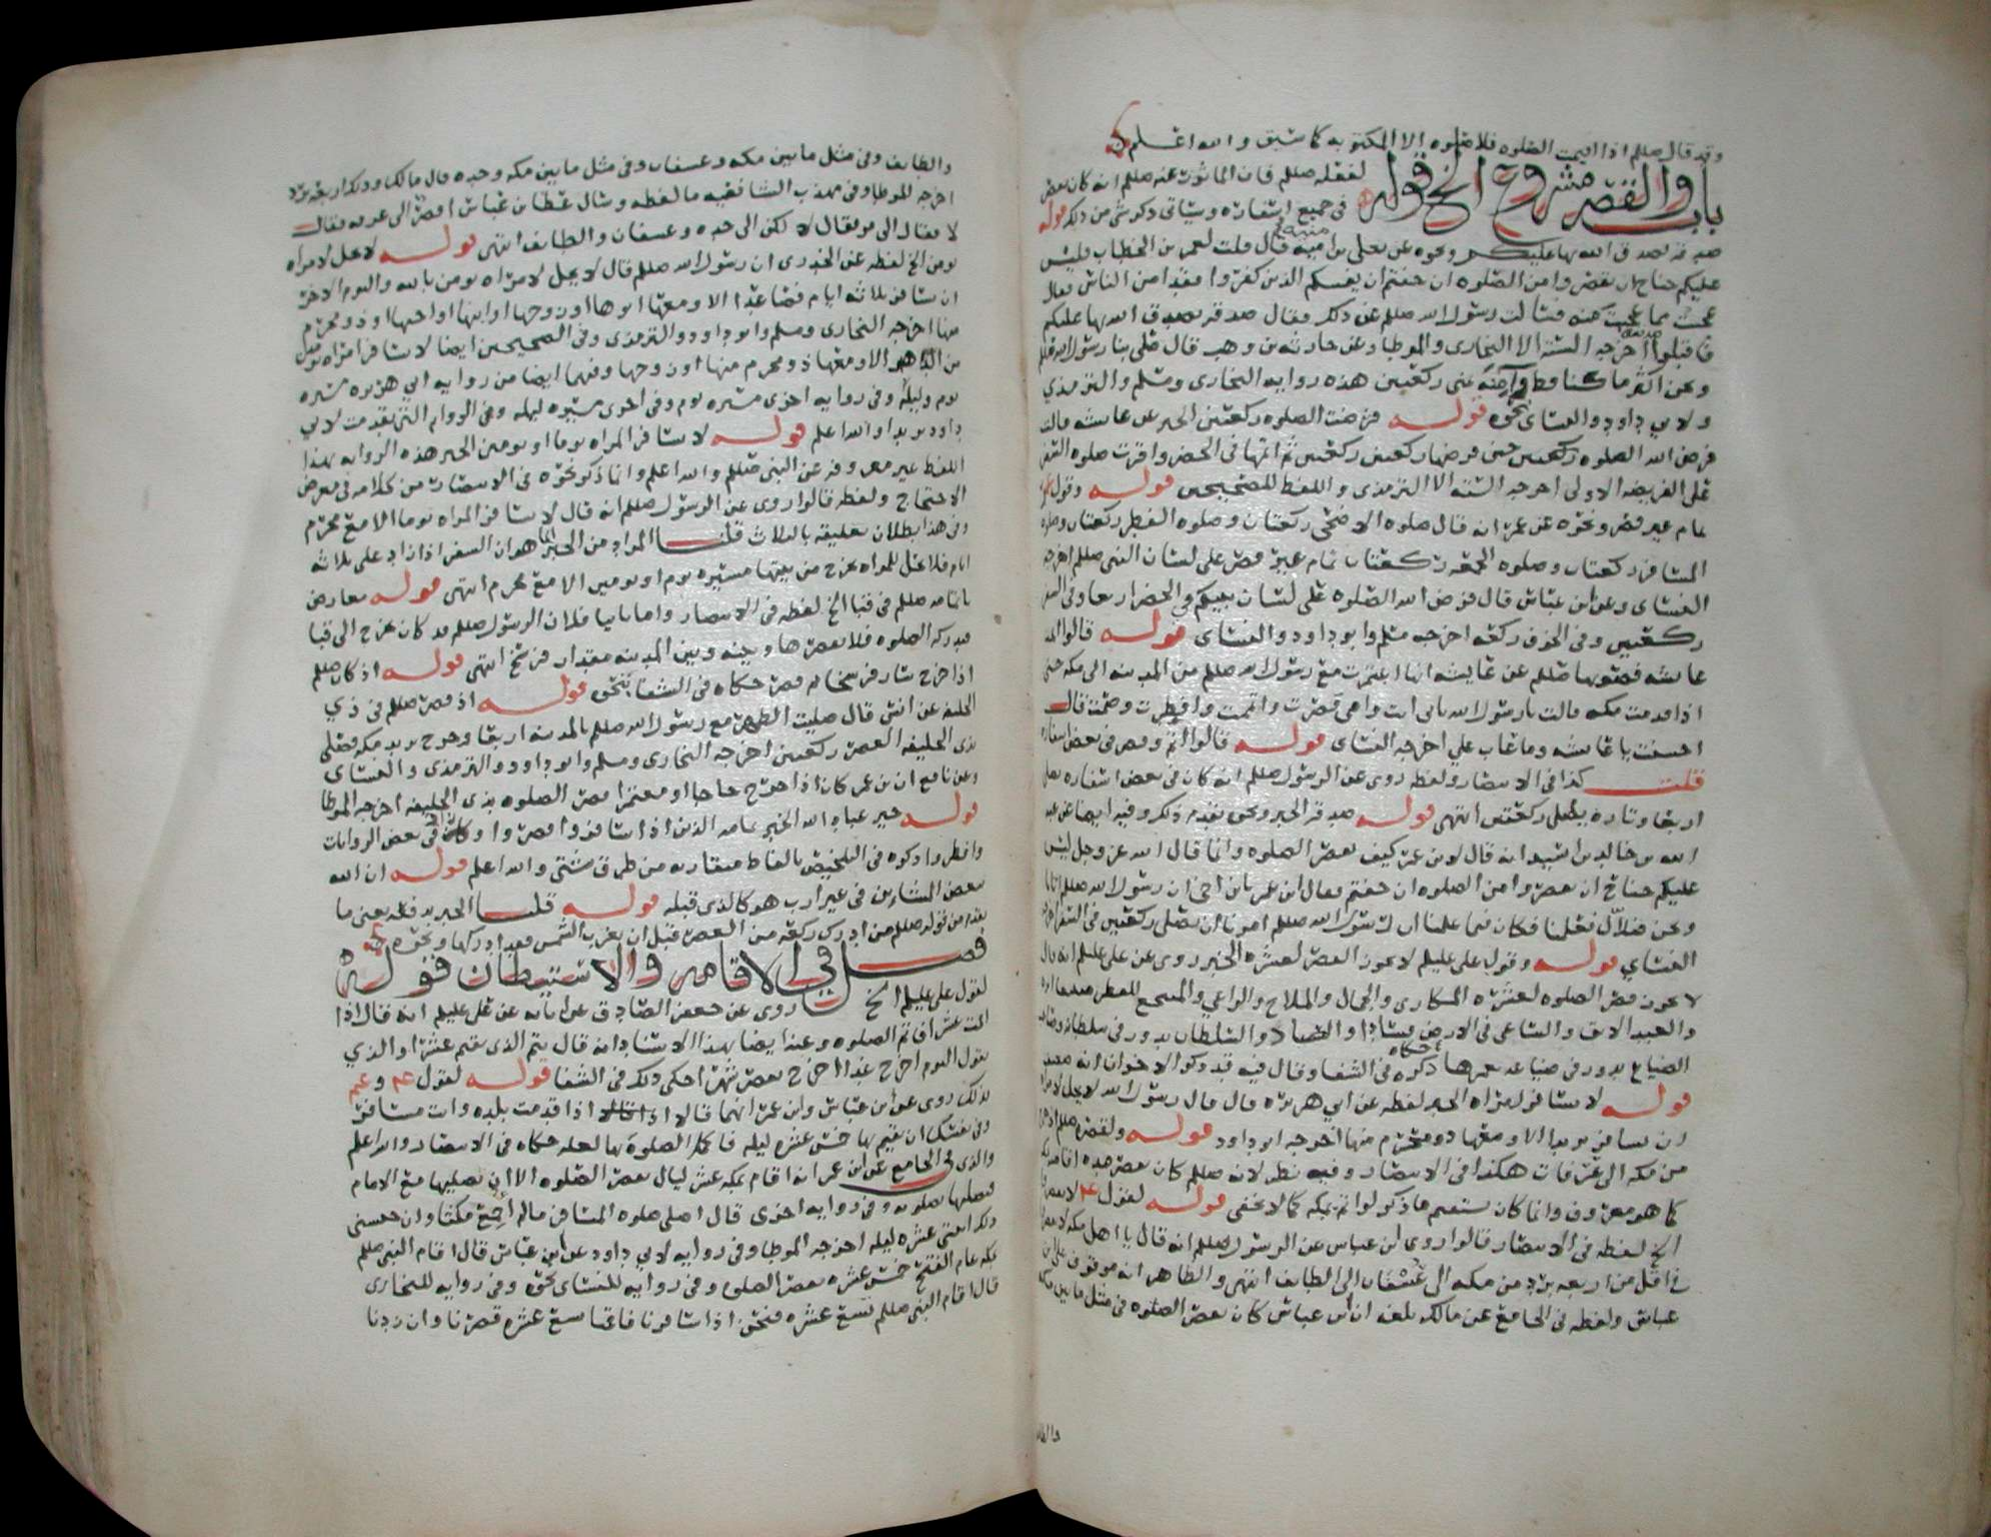 وقد قال صللم اذا اقيمت الصلوه فلا صلوه الا المكتوبه كما سبق والله اعلم
باب والقصر مشروع الخ قوله لفعله صللم فان الماثور عنه صللم انه كان يقصر
في جميع اسفاره وسياتي ذكر شي من ذلك قوله
صدقه تصدق الله بها عليكم ونحوه عن يعلى بن اميه قال قلت لعمر بن الخطاب فليس
عليكم جناح ان تقصروا من الصلوه ان خفتم ان يفتنكم الذين كفروا فقد امن الناس فقال
عجبت مما عجبت منه فسالت رسول الله صللم عن ذلك فقال صدقه تصدق الله بها عليكم
فاقبلوا صدقته اخرجه الستة الا البخاري والموطا وعن حارثه بن وهب قال صلى بنا رسول الله صللم
ونحن اكثر ما كنا قط وآمنه بمنى ركعتين هذه روايه البخاري ومسلم والترمذي
ولابي داود والنساي نحوه قوله فرضت الصلوه ركعتين الخبر عن عايشه قالت
فرض الله الصلوه ركعتين حين فرضها ركعتين ركعتين ثم اتمها في الحضر واقرت صلوه السفر
على الفريضه الاولى اخرجه الستة الا الترمذي واللفظ للصحيحين قوله وقول عمر
تمام غير قصر ونحوه عن عمر انه قال صلوه الاضحى ركعتان وصلوه الفطر ركعتان وصلوه
المسافر ركعتان وصلوه الجمعه ركعتان تمام غير قصر على لسان النبي صللم اخرجه
النساي وعن ابن عباس قال فرض الله الصلوه على لسان نبيكم في الحضر اربعا وفي السفر
ركعتين وفي الخوف ركعه اخرجه مسلم وابو داود والنساي قوله قالوا اتمت
عايشه فصوبها صللم عن عايشه انها اعتمرت مع رسول الله صللم من المدينه الى مكه حتى
اذا قدمت مكه قالت يا رسول الله بابي انت وامي قصرت واتممت وافطرت وصمت قال
احسنت يا عايشه وما عاب علي اخرجه النساي قوله قالوا اتم وقصر في بعض اسفاره
قلت كذا في الانتصار ولفظه روي عن الرسول صللم انه كان في بعض اسفاره يصلي
اربعا وتاره يصلي ركعتين انتهى قوله صدقه الخبر ونحوه تقدم ذكره وفيه ايضا عن عبد
الله بن خالد بن اسيد انه قال لابن عمر كيف تقصر الصلوه وانما قال الله عز وجل ليس
عليكم جناح ان تقصروا من الصلوه ان خفتم فقال ابن عمر يا ابن اخي ان رسول الله صللم اتانا
ونحن ضلال فعلمنا فكان فيما علمنا ان رسول الله صللم امرنا ان نصلي ركعتين في السفر اخرجه
النساي قوله وقول علي عليلم لا يجوز القصر لعشره الخبر روي عن علي عليلم انه قال
لا يجوز قصر الصلوه لعشره المكاري والجمال والملاح والراعي والمنتجع للقطر
والعبد الابق والساعي في الارض فسادا والصياد والسلطان يدور في سلطانه وصاحب
الضياع يدور في ضياعه يعمرها ذكره حكاه في الشفا وقال فيه قد ذكر الاخوان انه
قوله لا تسافر امراه الخبر لفظه عن ابي هريره قال قال رسول الله لا يحل لامراه
ان تسافر بريدا الا ومعها ذو محرم منها اخرجه ابو داود قوله ولقصره صللم
من مكه الى عرفات هكذا في الانتصار وفيه نظر لانه صللم كان يقصر مده اقامته
كما هو معروف وانما كان يستقيم ما ذكر لو اتم بمكه كما لا يخفى قوله لقول
الخ لفظه في الانتصار قالوا روى ابن عباس عن الرسول صللم انه قال يا اهل مكه لا تقصروا
في اقل من اربعه برد من مكه الى عسفان الى الطايف انتهى والظاهر انه موقوف على ابن
عباس ولفظه في الجامع عن مالك بلغه ان ابن عباس كان يقصر الصلوه في مثل ما بين مكه
والطايف
والطايف وفي مثل ما بين مكه وعسفان وفي مثل ما بين مكه وجده قال مالك وذلك اربعه برد
اخرجه الموطا وفي مهذب الشافعيه ما لفظه وسال عطا ابن عباس اقصر الى عرفه فقال
لا فقال الى مر فقال لا لكن الى جده وعسفان والطايف انتهى قوله لا يحل لامراه
تومن الخ لفظه عن الخدري ان رسول الله صللم قال لا يحل لامراه تومن بالله واليوم الاخر
ان تسافر ثلاثه ايام فصاعدا الا ومعها ابوها او زوجها او ابنها او اخوها او ذو محرم
منها اخرجه البخاري ومسلم وابو داود والترمذي وفي الصحيحين ايضا لا تسافر امراه يومين
من الدهر الا ومعها ذو محرم منها او زوجها وفيهما ايضا من روايه ابي هريره مسيره
يوم وليله وفي روايه اخرى مسيره يوم وفي اخرى مسيره ليله وفي الروايه التي تقدمت لابي
داود بريدا والله اعلم قوله لا تسافر المراه يوما او يومين الخبر هذه الروايه بهذا
اللفظ غير معروفه عن النبي صللم والله اعلم وانما ذكر نحوه في الانتصار من كلامه في معرض
الاحتجاج ولفظه قالوا روي عن الرسول صللم انه قال لا تسافر المراه يوما الا مع محرم
وفي هذا بطلان تعليقه بالثلاث قلنا المراد من الخبر انما هو ان السفر اذا زاد على ثلاثه
ايام فلا يحل للمراه تخرج من بيتها مسيره يوم او يومين الا مع محرم انتهى قوله معارض
باتمامه صللم في قبا الخ لفظه في الانتصار واما ثانيا فلان الرسول صللم قد كان يخرج الى قبا
فتدركه الصلوه فلا يقصرها وبينه وبين المدينه مقدار فرسخ انتهى قوله اذ كان صللم
اذا خرج سار فرسخا ثم قصر حكاه في الشفا بنحوه قوله اذ قصر صللم في ذي
الحليفه عن انس قال صليت الظهر مع رسول الله صللم بالمدينه اربعا وخرج يريد مكه فصلى
بذي الحليفه العصر ركعتين اخرجه البخاري ومسلم وابو داود والترمذي والنساي
وعن نافع ان ابن عمر كان اذا خرج حاجا او معتمرا قصر الصلوه بذي الحليفه اخرجه الموطا
قوله خير عباد الله الخبر تمامه الذين اذا سافروا قصروا وكان في بعض الروايات
وافطروا ذكره في التلخيص بالفاظ متقاربه من طرق شتى والله اعلم قوله ان الله
بغض السايرين في غير ارب هو كالذي قبله قوله قلنا الخبر يدفعه يعني ما
تقدم من قوله صللم من ادرك ركعه من العصر قبل ان تغرب الشمس فقد ادركها ونحوه
فصل في الاقامه والاستيطان قوله
لقول علي عليلم الخ روي عن جعفر الصادق عن ابايه عن علي عليلم انه قال اذا
اقمت عشرا فاتم الصلوه وعنه ايضا بهذا الاسناد انه قال يتم الذي يقيم عشرا والذي
يقول اليوم اخرج غدا اخرج يقصر شهرا حكى ذلك في الشفا قوله لقول
بذلك روي عن ابن عباس وابن عمر انهما قالا اذا قدمت بلده وانت مسافر
وفي نفسك ان تقيم بها خمس عشره ليله فاكمل الصلوه بها لعله حكاه في الانتصار والله اعلم
والذي في الجامع عن ابن عمر انه اقام بمكه عشر ليال يقصر الصلوه الا ان يصليها مع الامام
فيصليها بصلوته وفي روايه اخرى قال اصلي صلوه المسافر ما لم اجمع مكثا وان حبسني
ذلك اثنتي عشره ليله اخرجه الموطا وفي روايه لابي داود عن ابن عباس قال اقام النبي صللم
بمكه عام الفتح خمس عشره يقصر الصلوه وفي روايه للنساي نحوه وفي روايه للبخاري
قال اقام النبي صللم تسع عشره فنحن اذا سافرنا فاقمنا تسع عشره قصرنا وان زدنا